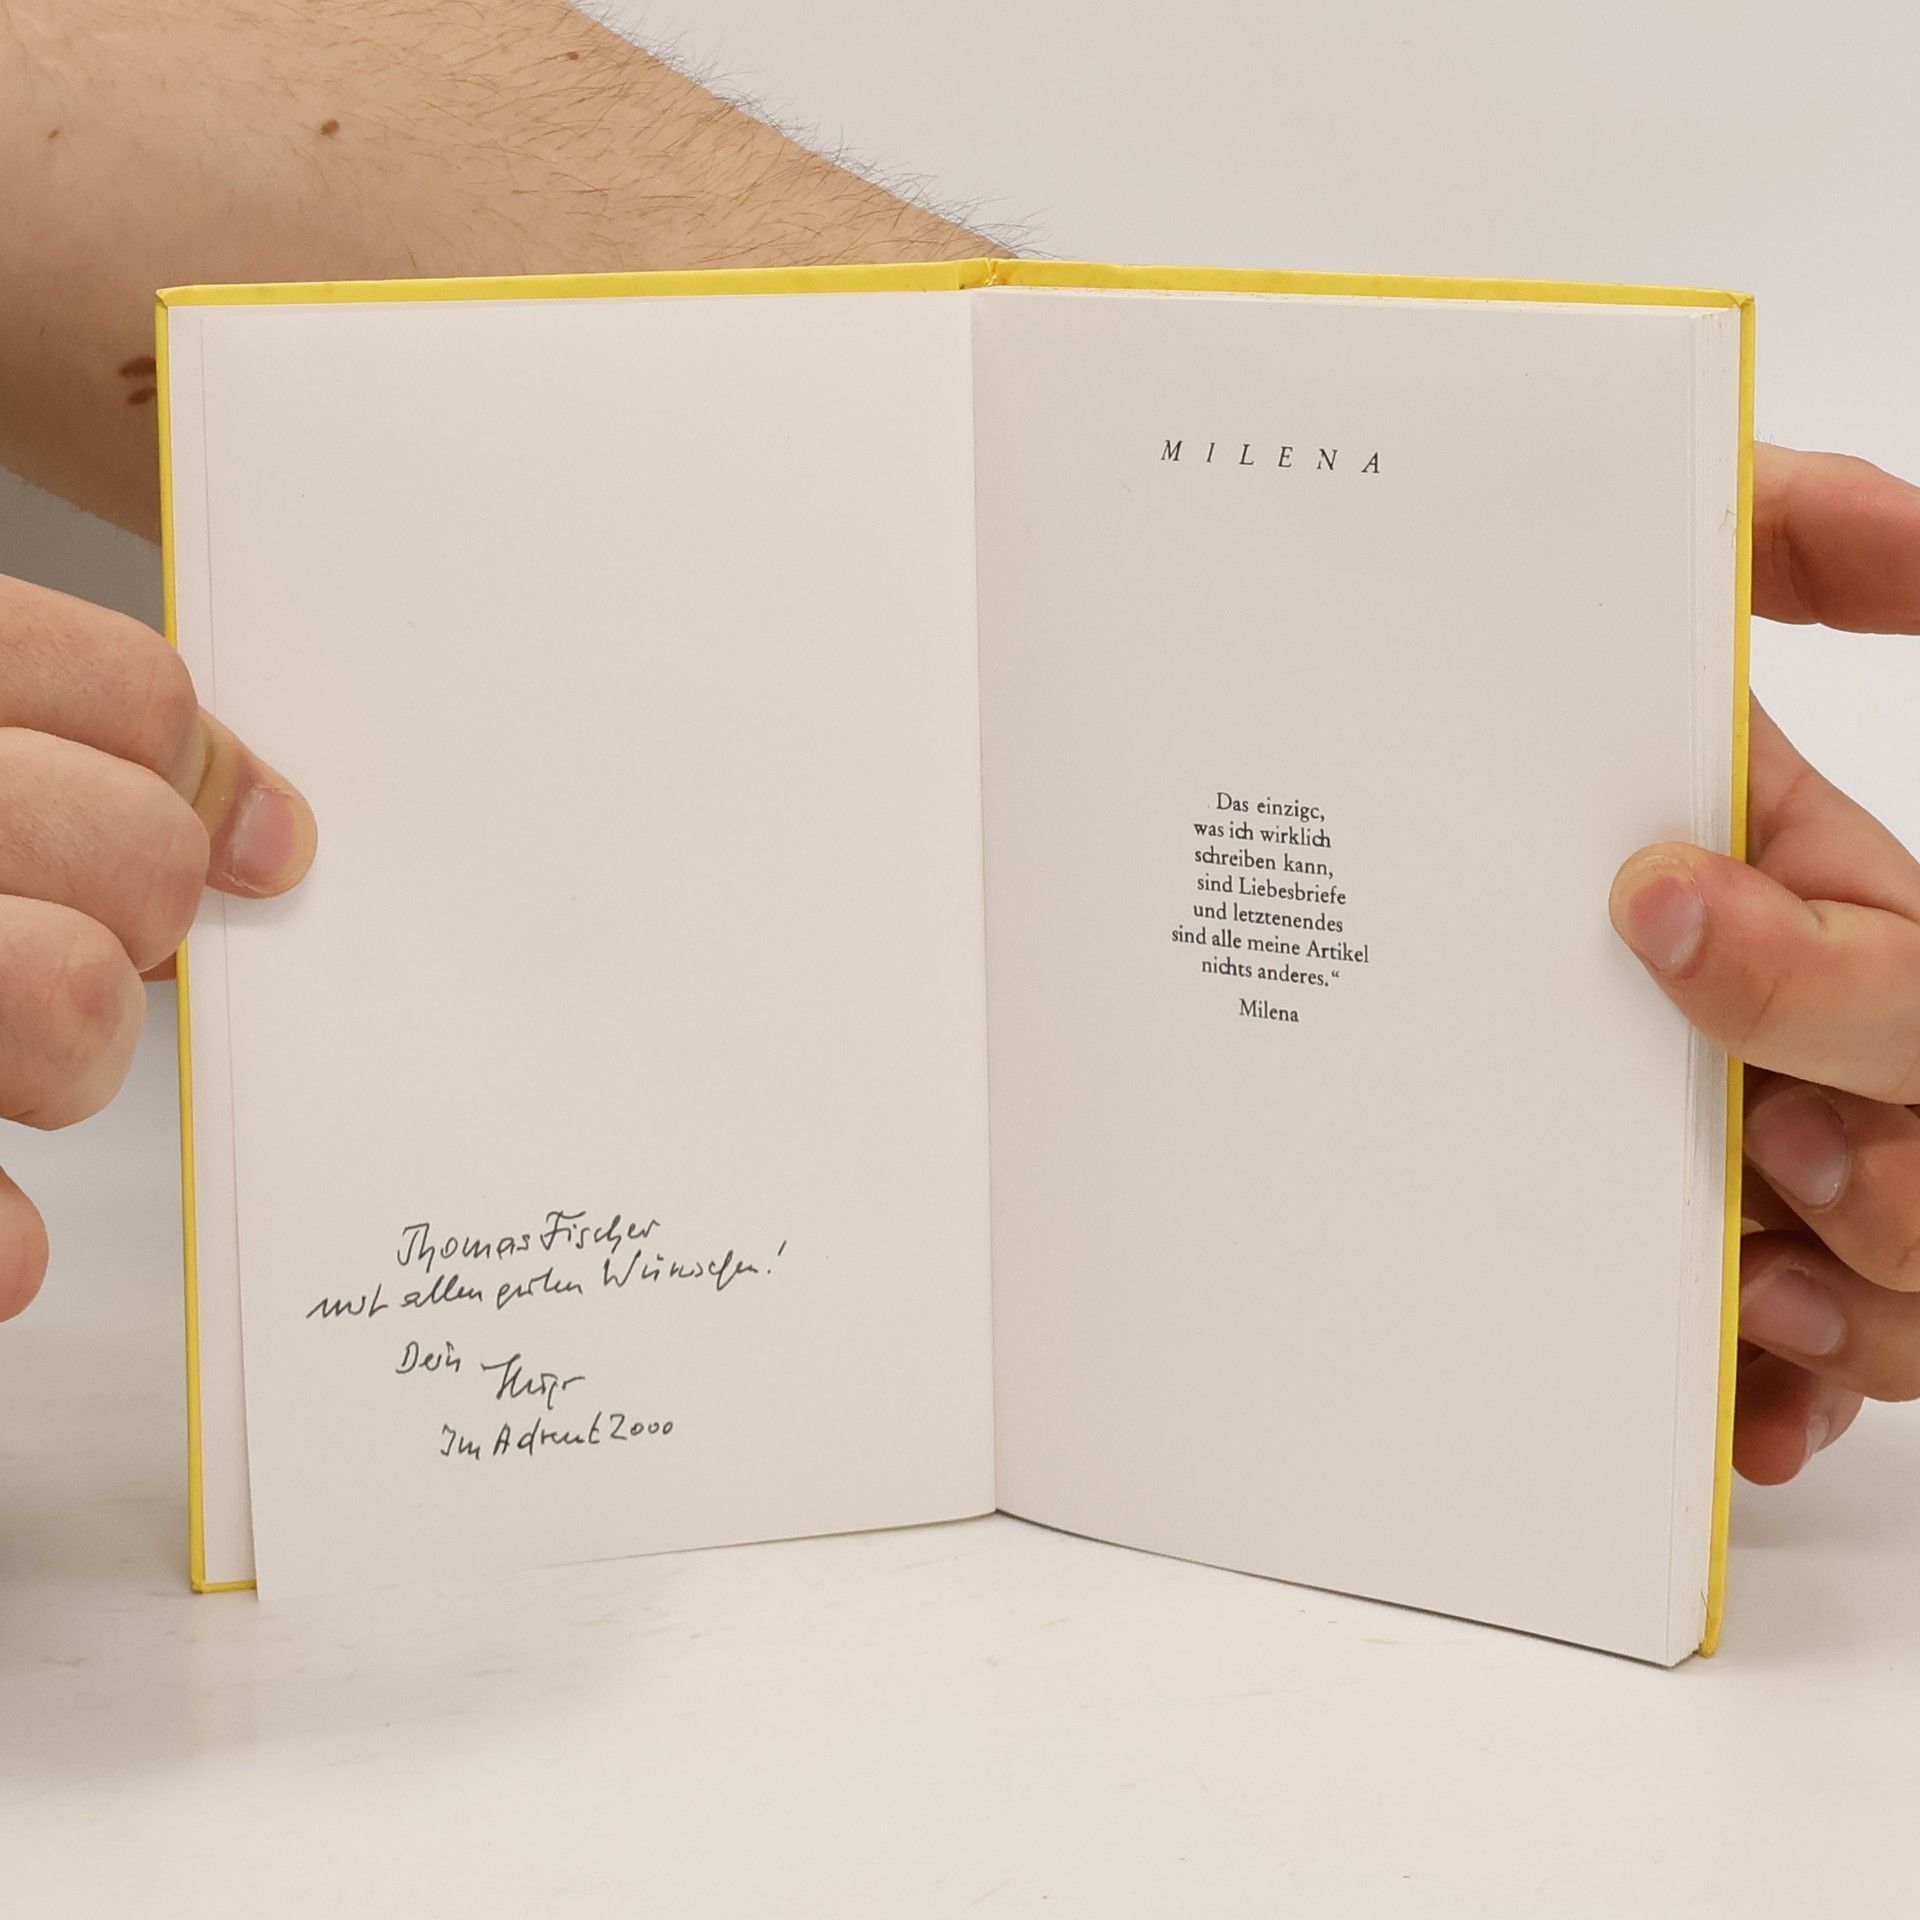 Thomas Fischer
mit allen guten Wünschen!
Dein
Im Advent 2000
M I L E N A
Das einzige,
was ich wirklich
schreiben kann,
sind Liebesbriefe
und letztenendes
sind alle meine Artikel
nichts anderes.“
Milena